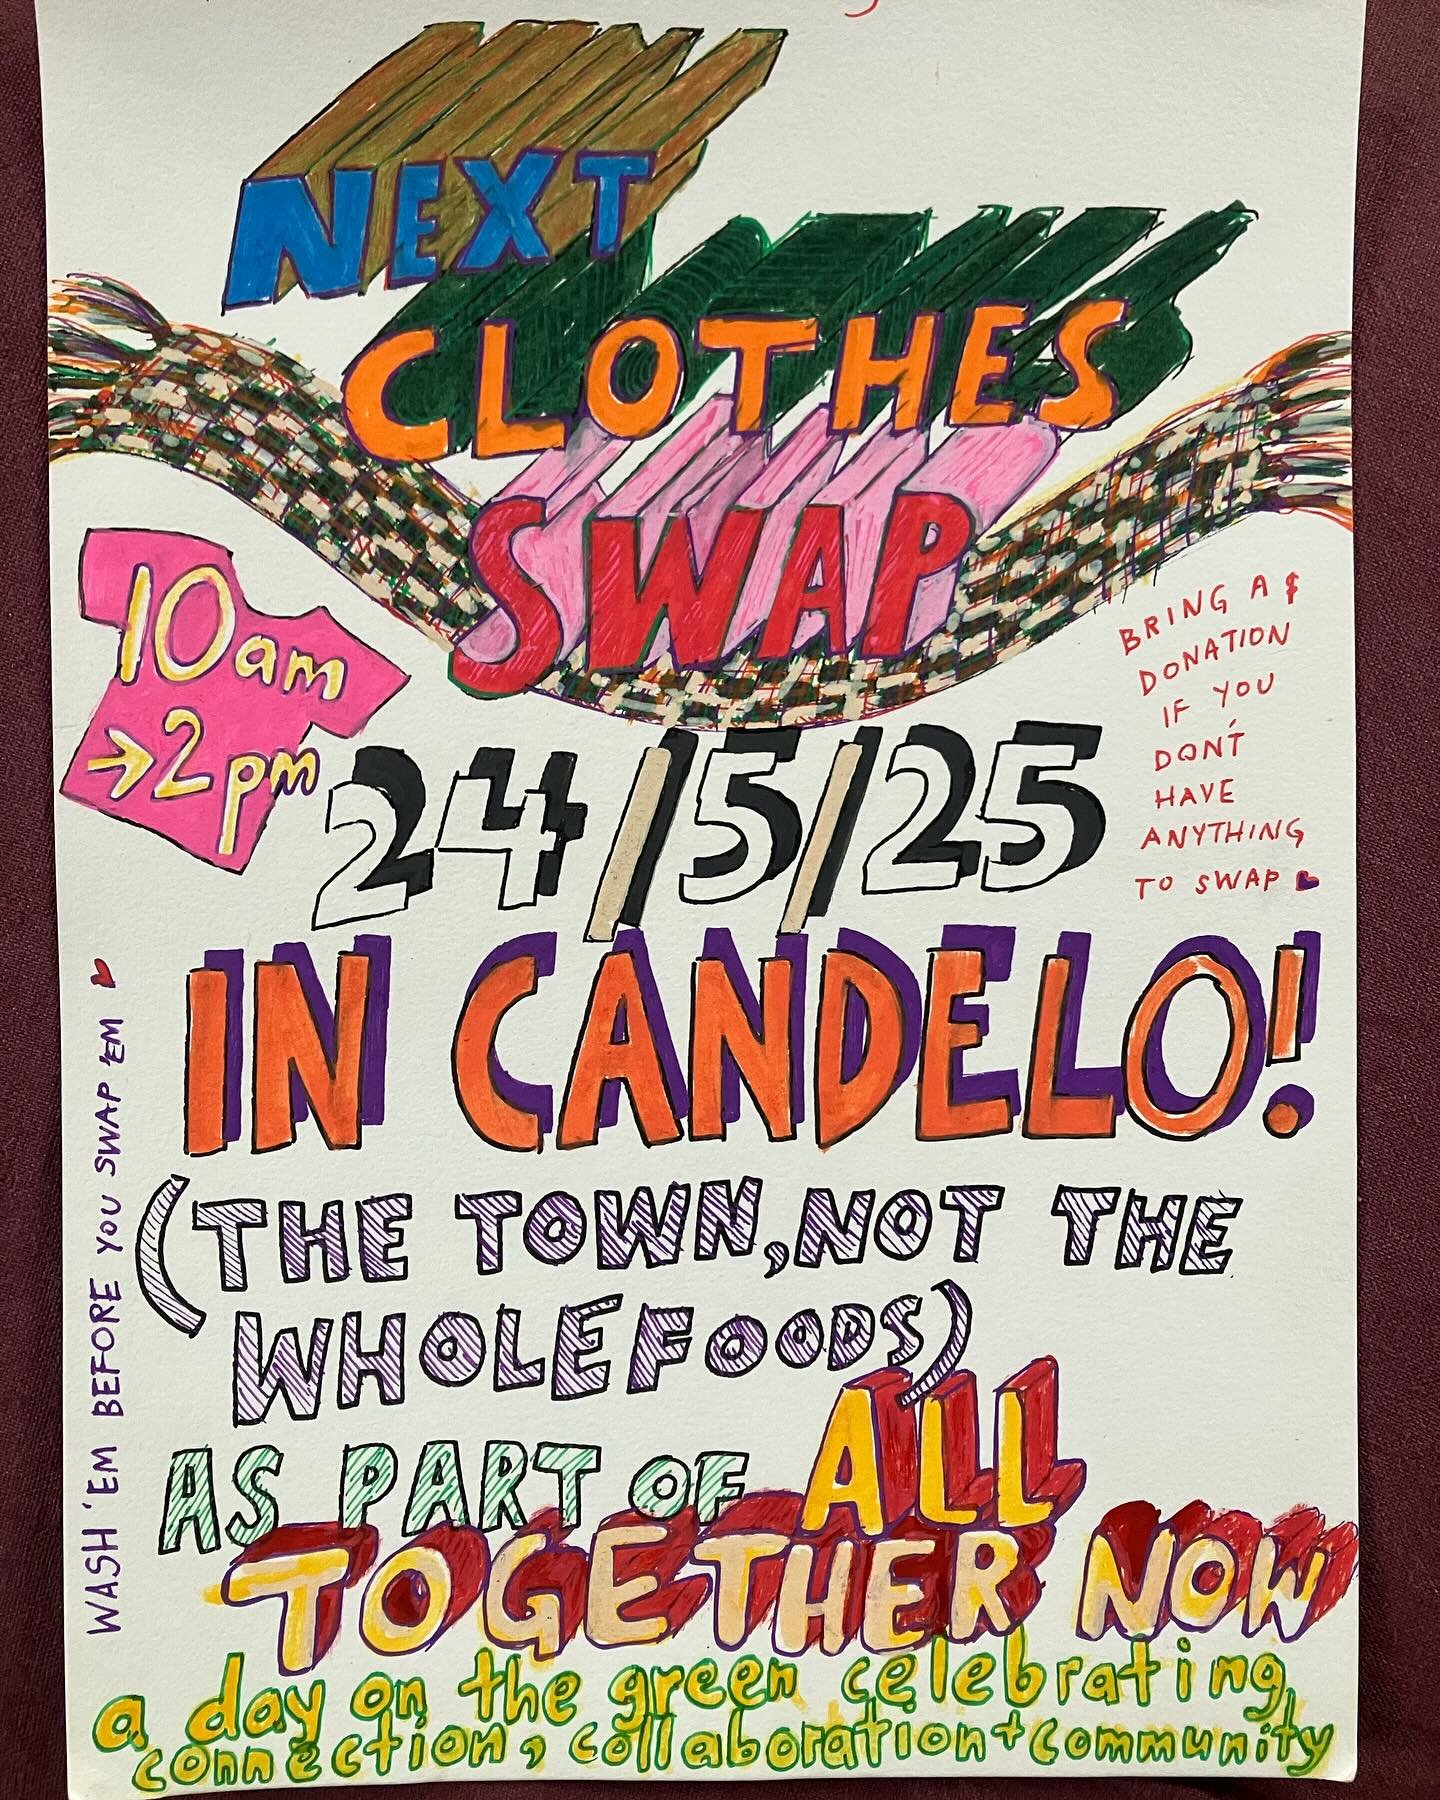 NEXT
CLOTHES
SWAP
10am
→2pm
BRING A $
DONATION
IF YOU
DON'T
HAVE
ANYTHING
TO SWAP
24/5/25
IN CANDELO!
(THE TOWN, NOT THE
WHOLEFOODS)
AS PART OF ALL
TOGETHER NOW
a day on the green celebrating
connection, collaboration + community
WASH 'EM BEFORE YOU SWAP 'EM